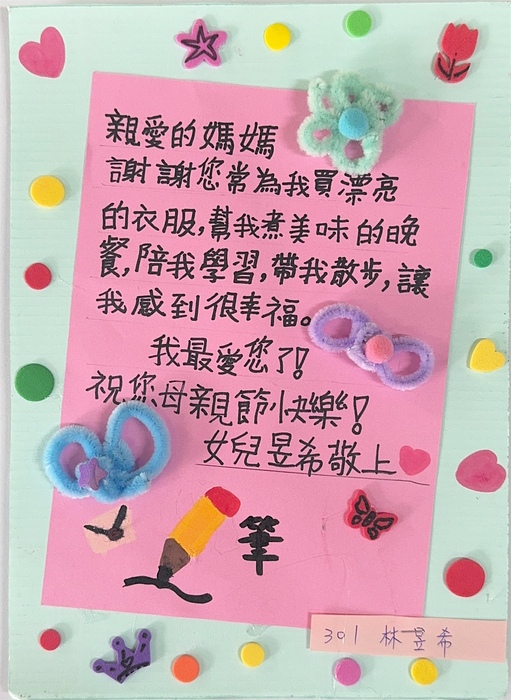 親愛的媽媽
謝謝您常為我買漂亮
的衣服,幫我煮美味的晚
餐,陪我學習,帶我散步,讓
我感到很幸福。
我最愛您了!
祝您母親節快樂!
女兒昱希敬上
筆
301 林昱希